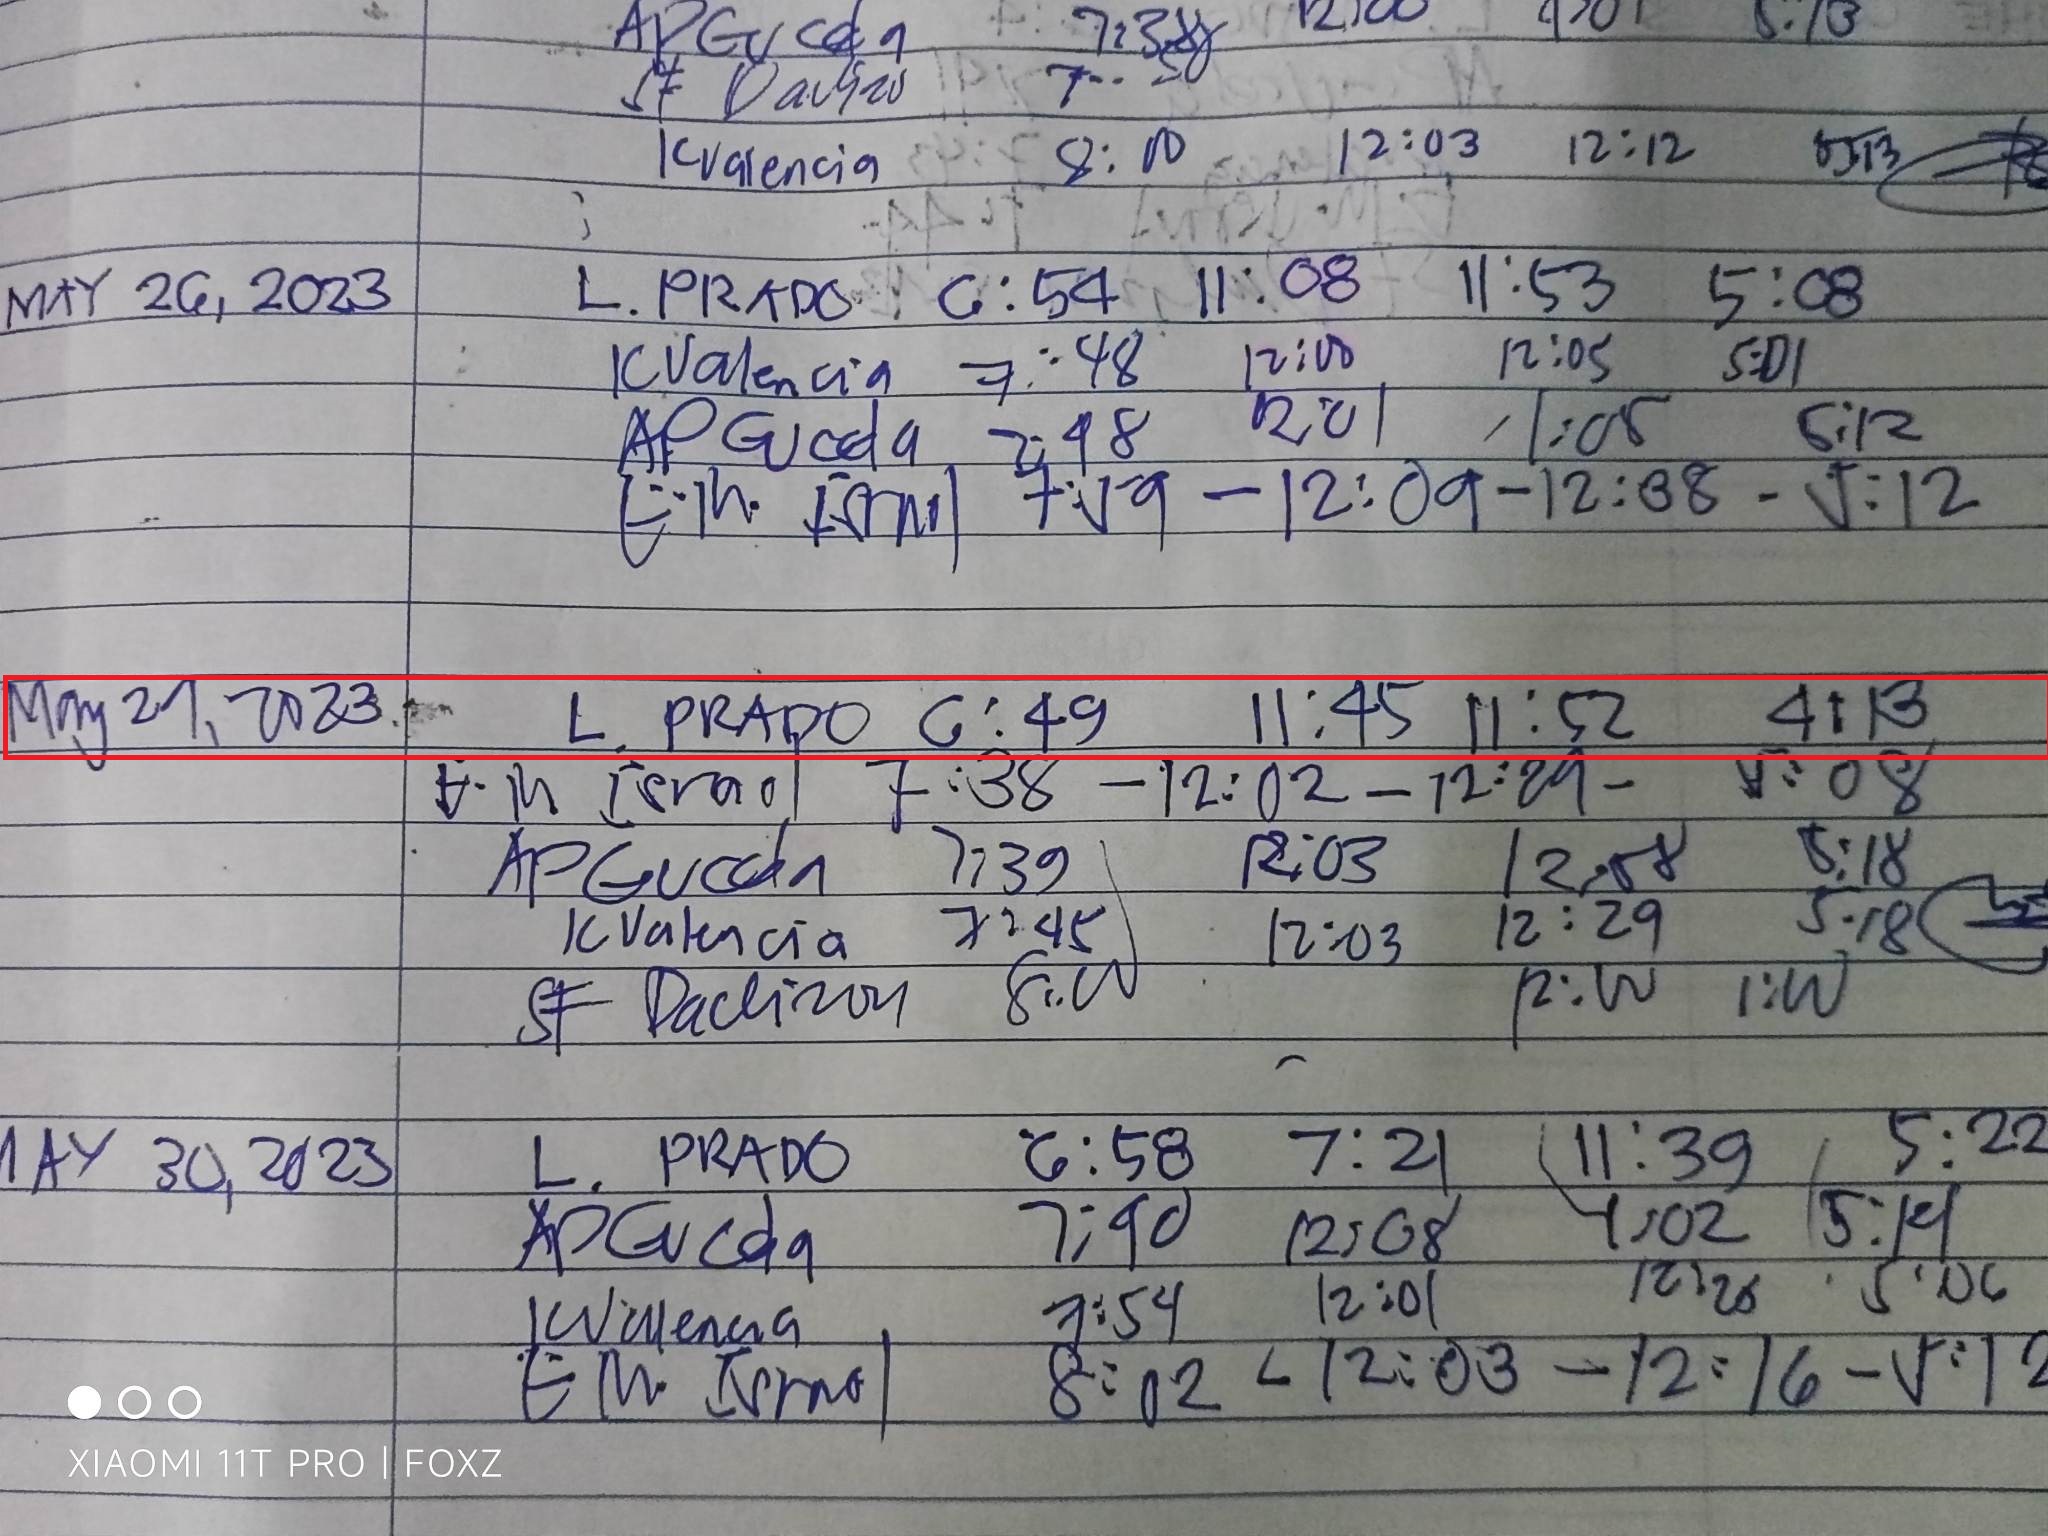 APGucda 7:38 12:00 5:13
SF Daclizon 7:
KValencia 8:00 12:03 12:12 5:13
MAY 26, 2023 L. PRADO 6:54 11:08 11:53 5:08
KValencia 7:48 12:00 12:05 5:01
APGucda 7:48 12:01 1:05 5:12
E.M. Israel 7:59 - 12:09 - 12:38 - 5:12
May 29, 2023 L. PRADO 6:49 11:45 11:52 4:13
E.M Israel 7:38 - 12:02 - 12:29 - 5:08
APGucda 7:39 12:03 12:58 5:18
KValencia 7:45 12:03 12:29 5:18
SF Daclizon 8:00 12:00 1:00
MAY 30, 2023 L. PRADO 6:58 7:21 11:39 5:22
APGucda 7:40 12:08 1:02 5:14
KValencia 7:54 12:01 12:26 5:06
E M. Israel 8:02 - 12:03 - 12:16 - 5:12
XIAOMI 11T PRO | FOXZ